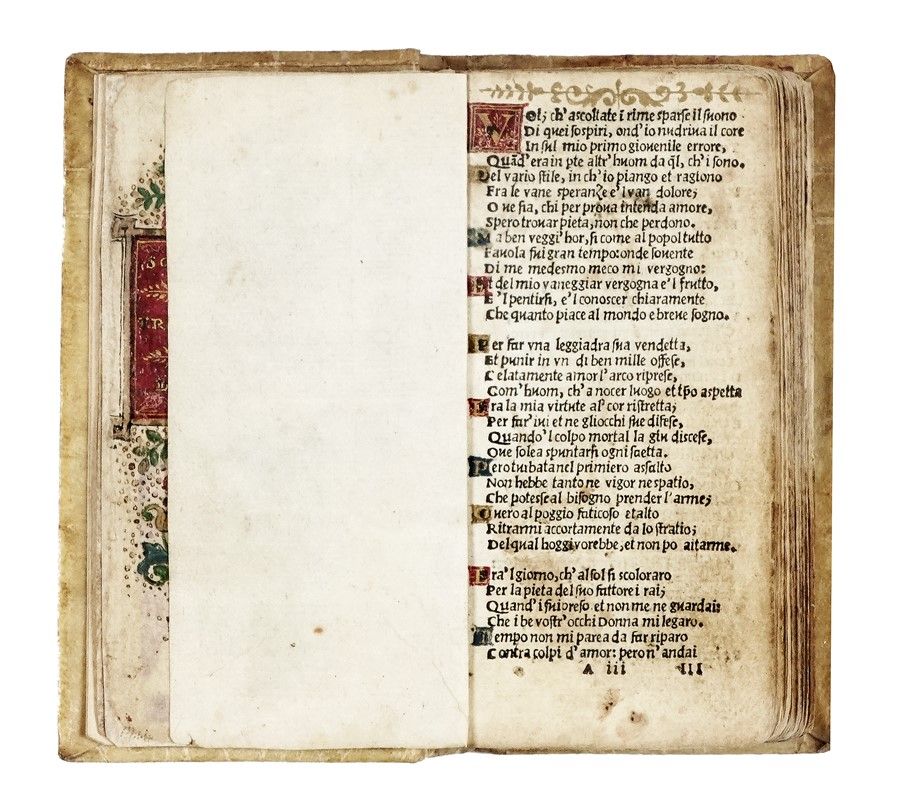 TR
VOI; ch'ascoltate ī rime sparse il suono
Di quei sospiri, ond'io nudriua il core
In sul mio primo giouenile errore,
Quād'era in pte altr'huom da ql, ch'i sono.
Del vario stile, in ch'io piango et ragiono
Fra le vane speranze e'l van dolore;
Oue sia, chi per proua intenda amore,
Spero trouar pieta, non che perdono.
Ma ben veggi'hor, si come al popol tutto
Fauola fui gran tempo: onde souente
Di me medesmo meco mi vergogno:
Et del mio vaneggiar vergogna e'l frutto,
E'l pentirsi, e'l conoscer chiaramente
Che quanto piace al mondo e breue sogno.
Per far vna leggiadra sua vendetta,
Et punir in vn di ben mille offese,
Celatamente amor l'arco riprese,
Com'huom, ch'a nocer luogo et tēpo aspetta
Era la mia virtute al cor ristretta;
Per far'iui et ne gliocchi sue difese,
Quando'l colpo mortal la giu discese,
Oue solea spuntarsi ogni saetta.
Pero turbata nel primiero assalto
Non hebbe tanto ne vigor ne spatio,
Che potesse al bisogno prender l'arme;
Ouero al poggio faticoso et alto
Ritrarmi accortamente da lo stratio;
Del qual hoggi vorebbe, et non po aitarme.
Era'l giorno, ch'al sol si scoloraro
Per la pieta del suo fattore i rai;
Quand'i fui preso et non me ne guardai:
Che i be vostr'occhi Donna mi legaro.
Tempo non mi parea da far riparo
Contra colpi d'amor: pero n'andai
A iii III